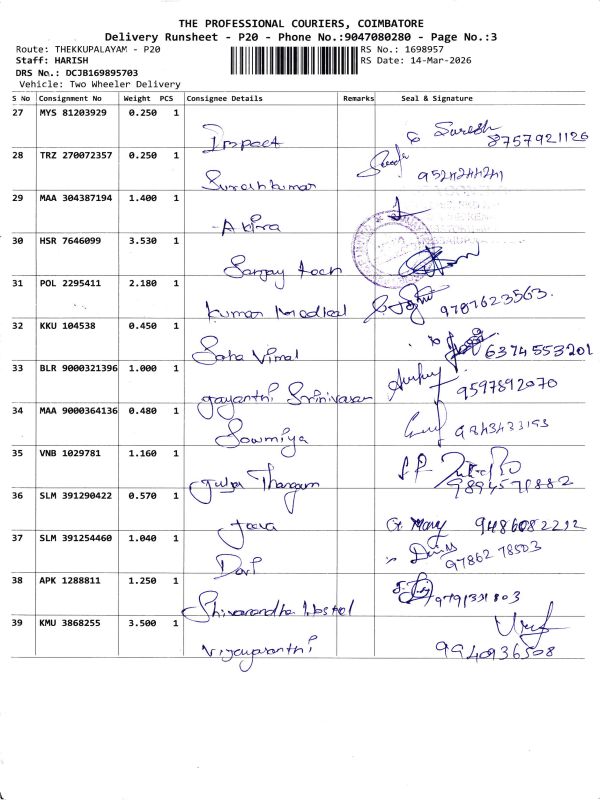 THE PROFESSIONAL COURIERS, COIMBATORE
Delivery Runsheet - P20 - Phone No.:9047080280 - Page No.:3
Route: THEKKUPALAYAM - P20
RS No.: 1698957
Staff: HARISH
RS Date: 14-Mar-2026
DRS No.: DCJB169895703
Vehicle: Two Wheeler Delivery
S No Consignment No Weight PCS Consignee Details Remarks Seal & Signature
27 MYS 81203929 0.250 1
Impact Suresh 8757921126
28 TRZ 270072357 0.250 1
Sureshkumar
29 MAA 304387194 1.400 1
Akira
30 HSR 7646099 3.530 1
Sanjay
31 POL 2295411 2.180 1
Kumar Medical 9787623563.
32 KKU 104538 0.450 1
Vimal 6374553201
33 BLR 9000321396 1.000 1
gayanthi Srinivasan 9597892070
34 MAA 9000364136 0.480 1
Sowmiya
35 VNB 1029781 1.160 1
Thangam 9894571882
36 SLM 391290422 0.570 1
Jeeva Mary 9486082212
37 SLM 391254460 1.040 1
9786278503
38 APK 1288811 1.250 1
9791331803
39 KMU 3868255 3.500 1
Vijayavanthi 9940936508